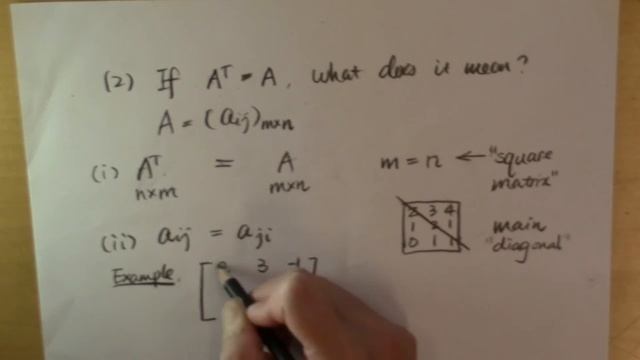 (2) If Aᵀ = A, what does it mean?
A = (aij)m×n
(i) Aᵀ = A m = n ← "square
n×m m×n matrix"
2 3 4
1 2 1
0 1 1
main
"diagonal"
(ii) aij = aji
Example. 3 -1